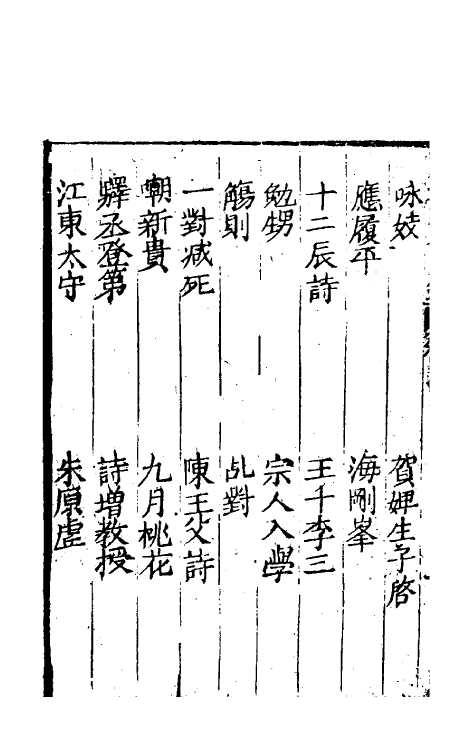 咏妓　賀婢生子啓
應履平　海剛峯
十二辰詩　王千李三
勉甥　宗人入學
觴則　乩對
一對减死　陳王父詩
嘲新貴　九月桃花
驛丞登第　詩增教授
江東太守　朱原虚